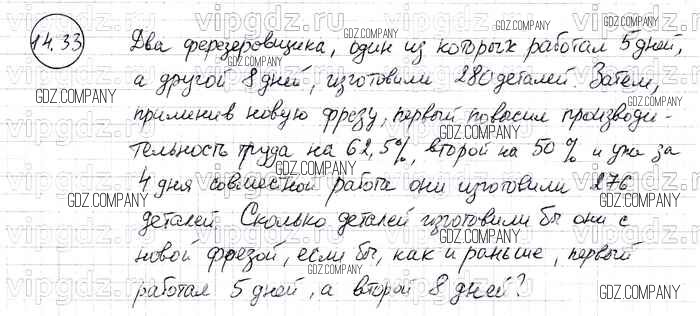 14.33
Два фрезеровщика, один из которых работал 5 дней,
а другой 8 дней, изготовили 280 деталей. Затем,
применив новую фрезу, первый повысил производи-
тельность труда на 62,5%, второй на 50% и уже за
4 дня совместной работы они изготовили 276
деталей. Сколько деталей изготовили бы они с
новой фрезой, если бы, как и раньше, первый
работал 5 дней, а второй 8 дней?
GDZ.COMPANY
vipgdz.ru